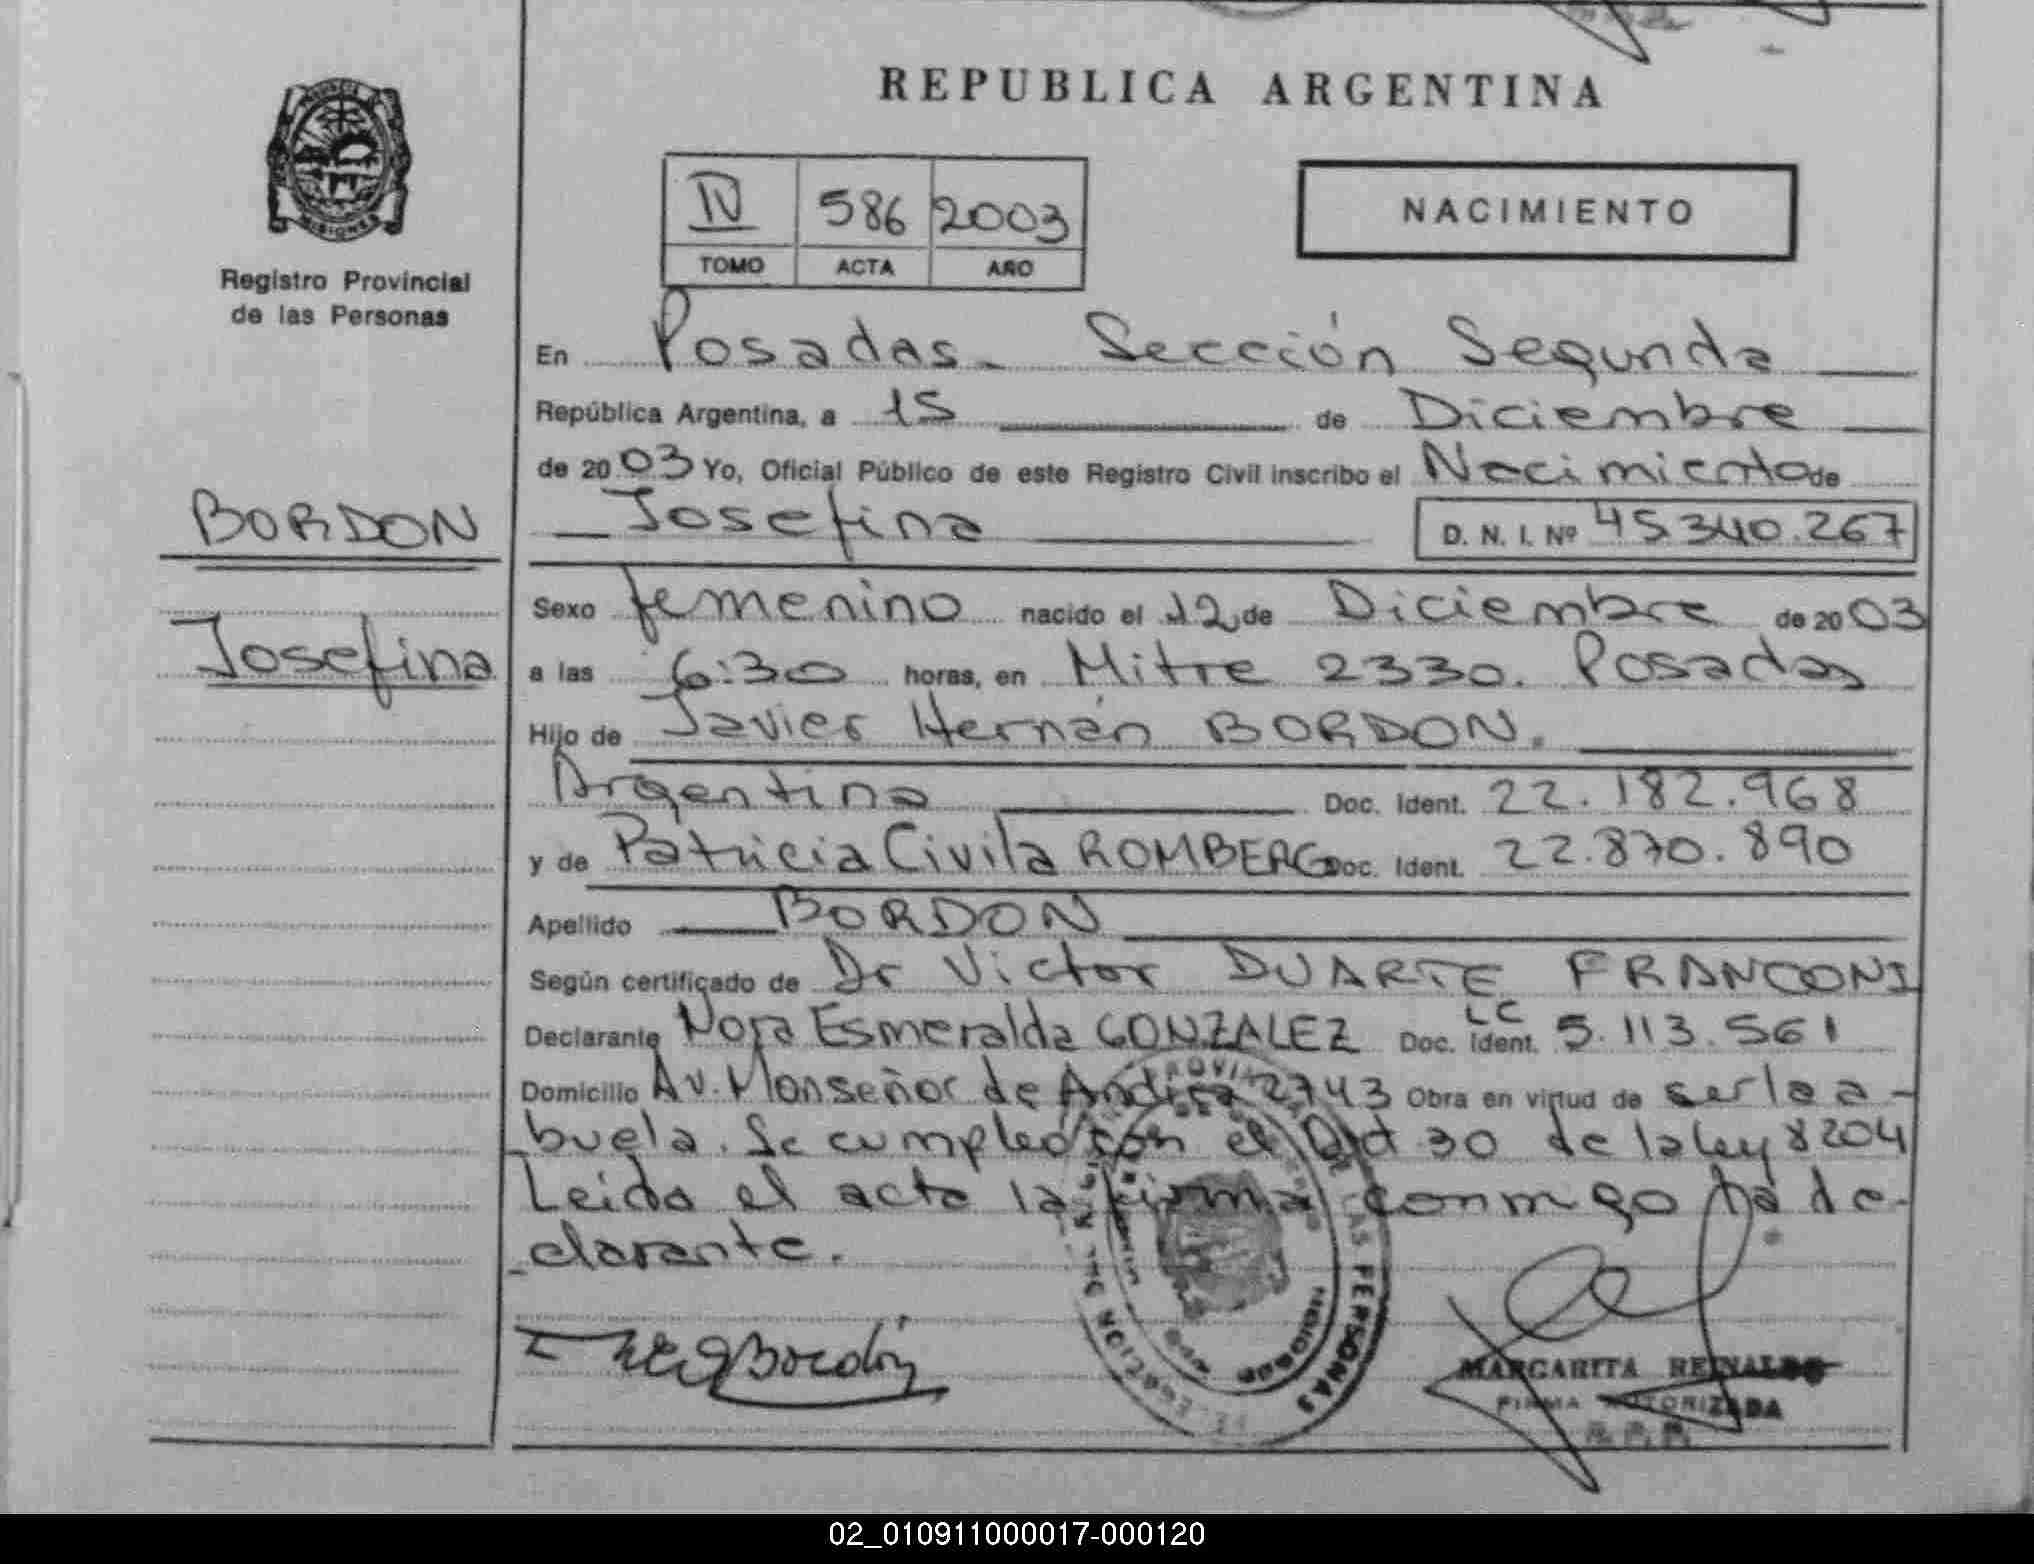 REPUBLICA ARGENTINA
IV 586 2003
TOMO ACTA AÑO
NACIMIENTO
Registro Provincial
de las Personas
BORDON
Josefina
En Posadas - Sección Segunda
República Argentina, a 15 de Diciembre
de 2003 Yo, Oficial Público de este Registro Civil inscribo el Nacimiento de
Josefina D. N. I. Nº 45.340.267
Sexo femenino nacido el 12 de Diciembre de 2003
a las 6:30 horas, en Mitre 2330. Posadas
Hijo de Javier Hernán BORDON.
Argentina Doc. Ident. 22.182.968
y de Patricia Civila ROMBERG Doc. Ident. 22.870.890
Apellido BORDON
Según certificado de Dr Victor DUARTE FRANCONI
Declarante Nora Esmeralda GONZALEZ Doc. Ident. LC 5.113.561
Domicilio Av. Monseñor de Andrea 2743 Obra en virtud de ser la a-
buela. Se cumpleó con el Art 30 de la ley 8204
Leido el acta la firma conmigo la de-
clarante.
Bordón
MARGARITA REINALDO
FIRMA AUTORIZADA
R. P. P.
02_010911000017-000120